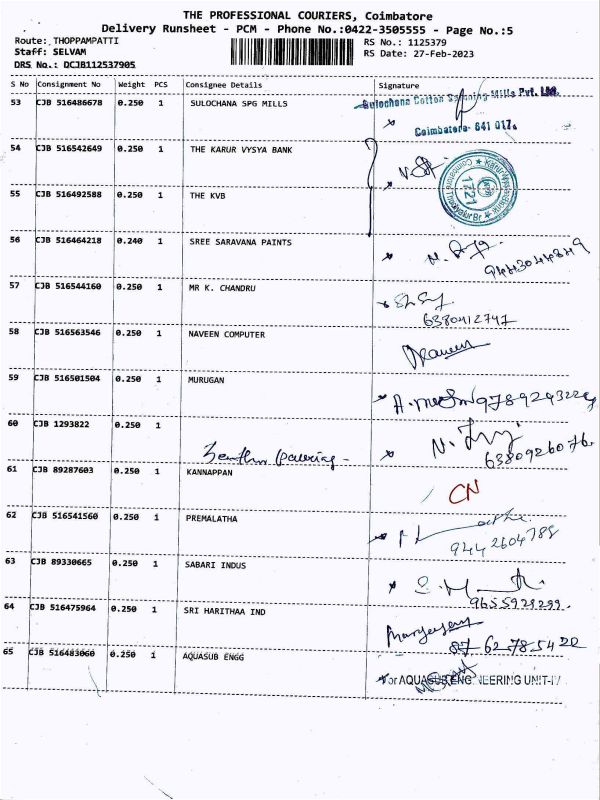 THE PROFESSIONAL COURIERS, Coimbatore
Delivery Runsheet - PCM - Phone No.:0422-3505555 - Page No.:5
Route: THOPPAMPATTI
RS No.: 1125379
Staff: SELVAM
RS Date: 27-Feb-2023
DRS No.: DCJB112537905
S No Consignment No Weight PCS Consignee Details Signature
53 CJB 516486678 0.250 1 SULOCHANA SPG MILLS Sulochana Cotton Spinning Mills Pvt. Ltd.
Coimbatore- 641 017.
54 CJB 516542649 0.250 1 THE KARUR VYSYA BANK
55 CJB 516492588 0.250 1 THE KVB
56 CJB 516464218 0.240 1 SREE SARAVANA PAINTS
57 CJB 516544160 0.250 1 MR K. CHANDRU
6380412747
58 CJB 516563546 0.250 1 NAVEEN COMPUTER
59 CJB 516501504 0.250 1 MURUGAN
60 CJB 1293822 0.250 1
6380926076
61 CJB 89287603 0.250 1 KANNAPPAN CN
62 CJB 516541560 0.250 1 PREMALATHA
9442604788
63 CJB 89330665 0.250 1 SABARI INDUS
9655929299.
64 CJB 516475964 0.250 1 SRI HARITHAA IND
87 62 78 54 22
65 CJB 516483060 0.250 1 AQUASUB ENGG For AQUASUB ENGINEERING UNIT-IV